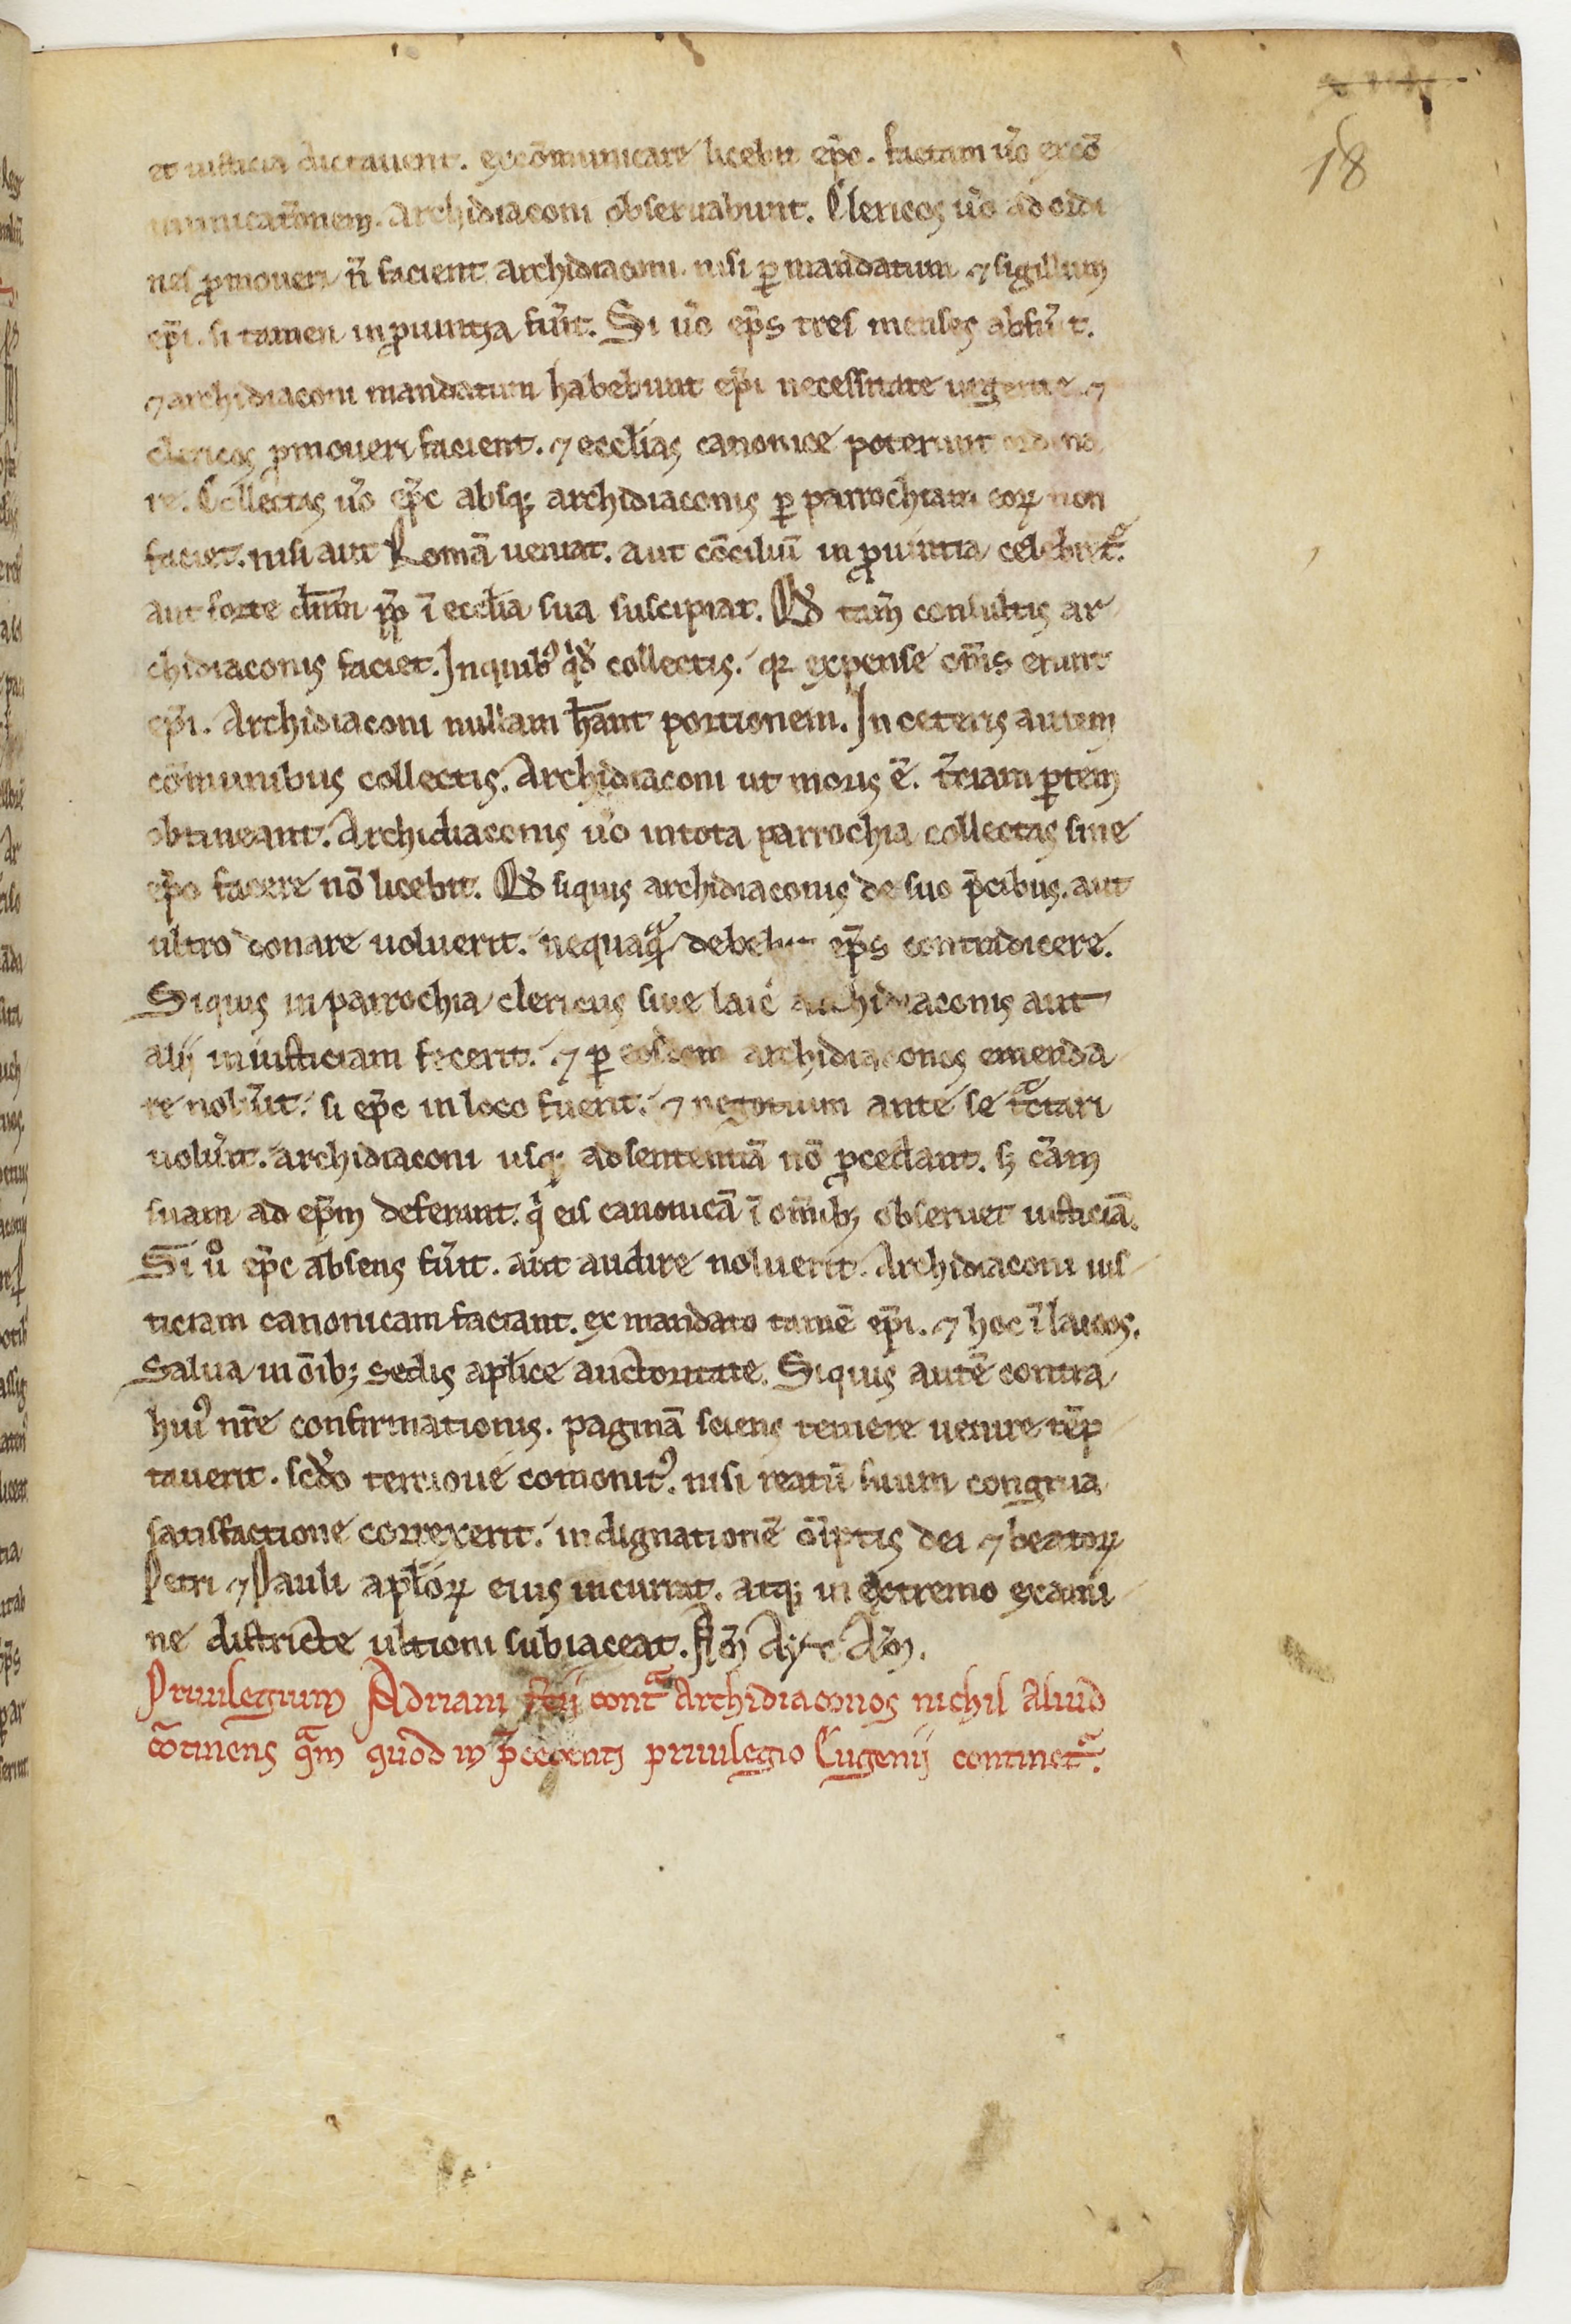 18
et iusticia dictauerit. excōmunicare licebit ep̄o. factam ūo excō
municat̄onem. Archidiaconi obseruabunt. Clericos ūo ad ordi
nes ꝓmoueri n̄ facient archidiaconi. nisi ꝑ mandatum ⁊ sigillum
ep̄i. si tamen in ꝓuintia fu̾it. Si ūo ep̄s tres menses abfu̾it.
⁊ archidiaconi mandatum habebunt ep̄i necessitate urgente. ⁊
clericos ꝓmoueri facient. ⁊ eccl̄ias canonice poterunt ordina
re. Collectas ūo ep̄c absq; archidiaconis ꝑ parrochiam eoꝝ non
faciet. nisi aut Romā ueniat. aut cōciliū in ꝓuintia celebret᷑.
aut forte dn̄m pp̄ ī eccl̄ia sua suscipiat. Qd̄ tam̄ consultis ar
chidiaconis faciet. In quibꝰ qͥdē collectis. qꝛ expense om̄s erunt
ep̄i. Archidiaconi nullam hāant portionem. In ceteris autem
cōmunibus collectis. Archidiaconi ut moris ē. t̄ciam ꝑtem
obtineant. Archidiaconis ūo in tota parrochia collectas sine
ep̄o facere nō licebit. Qd̄ siquis archidiaconis de suo p̄cibus. aut
ultro donare uoluerit. nequaqᷓ debebit ep̄s contradicere.
Siquis in parrochia clericus siue laic᷒ archidiaconis aut
alij iniusticiam fecerit. ⁊ ꝑ eosdem archidiaconos emenda
re nolu̾it. si ep̄c in loco fuerit. ⁊ negotium ante se tᷓctari
uolu̾it. archidiaconi usq; ad sententiā nō ꝓcedant. sꝫ cām
suam ad ep̄m deferant. qͥ eis canonicā ī om̄ibꝫ obseruet iusticiā.
Si uͦ ep̄c absens fu̾it. aut audire noluerit. Archidiaconi ius
ticiam canonicam faciant. ex mandato tamē ep̄i. ⁊ hoc ī laicos.
Salua in ōibꝫ sedis apl̄ice auctoritate. Siquis autē contra
huiꝰ nr̄e confirmationis. paginā sciens temere uenire tēp
tauerit. scd̄o tertioue comonitꝰ. nisi reatū suum congrua
satisfactione correxerit. indignationē ōīptis dei ⁊ beatoꝝ
Petri ⁊ Pauli apl̄oꝝ eius incurrat. atq; in extremo exami
ne districte ultioni subiaceat. Am̄ Am̄.
Priuilegium Adriani contᷓ Archidiaconos nichil aliud
cōtinens qᷓm quod in p̄cedenti priuilegio Eugenij continet᷑.